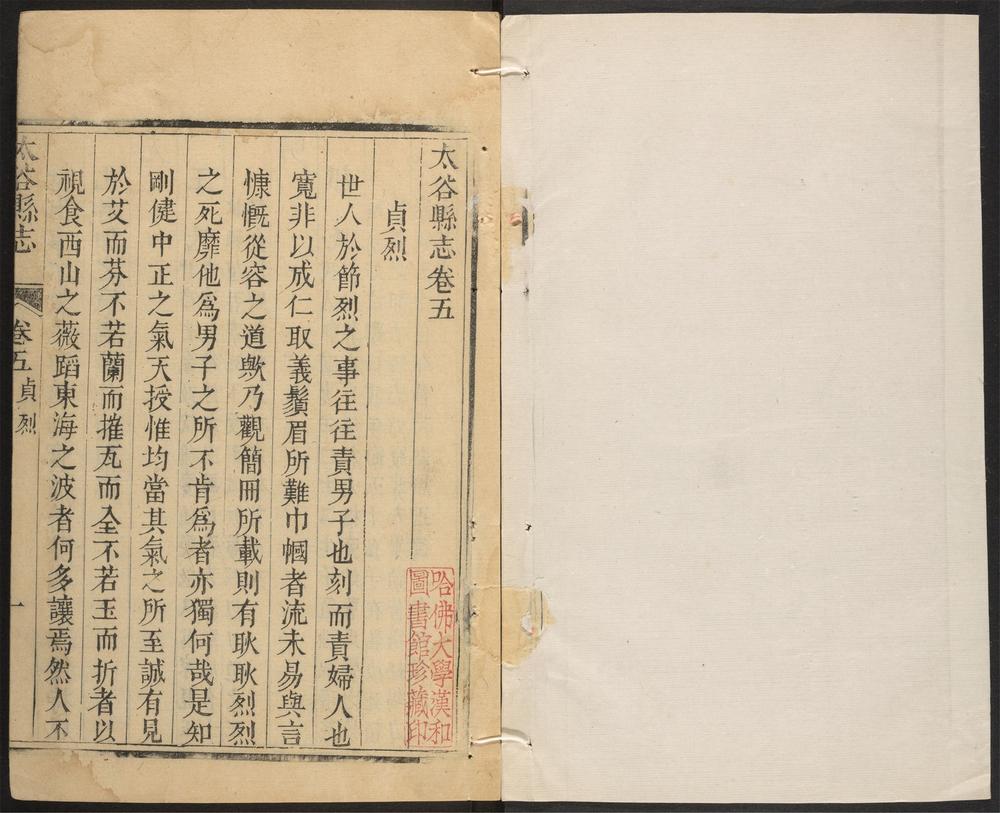 太谷縣志卷五
貞烈
世人於節烈之事往往責男子也刻而責婦人也
寬非以成仁取義鬚眉所難巾幗者流未易與言
慷慨從容之道歟乃觀簡冊所載則有耿耿烈烈
之死靡他爲男子之所不肯爲者亦獨何哉是知
剛健中正之氣天授惟均當其氣之所至誠有見
於艾而芬不若蘭而摧瓦而全不若玉而折者以
視食西山之薇蹈東海之波者何多讓焉然人不
太谷縣志
卷五
貞烈
一
哈佛大學漢和
圖書館珍藏印